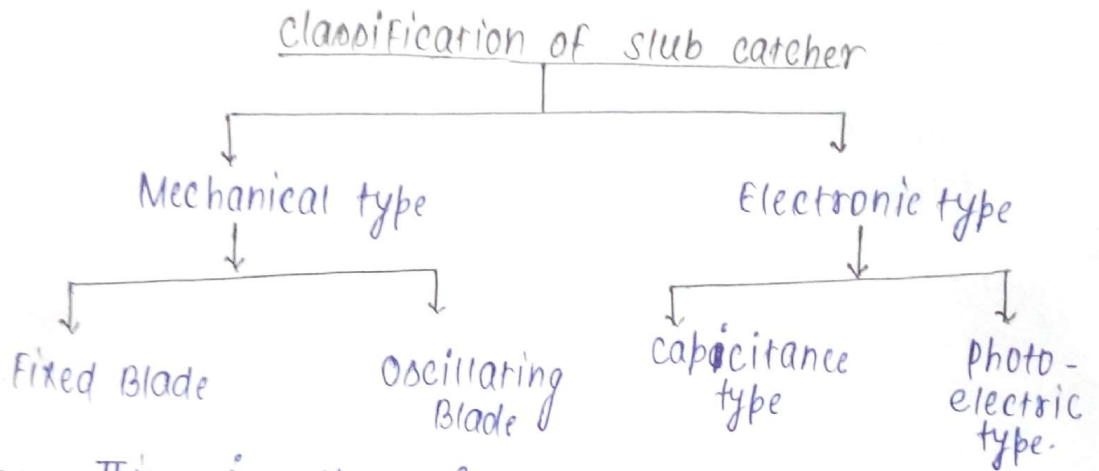 Classification of slub catcher
Mechanical type
Electronic type
Fixed Blade
Oscillating
Blade
capicitance
type
photo-
electric
type.